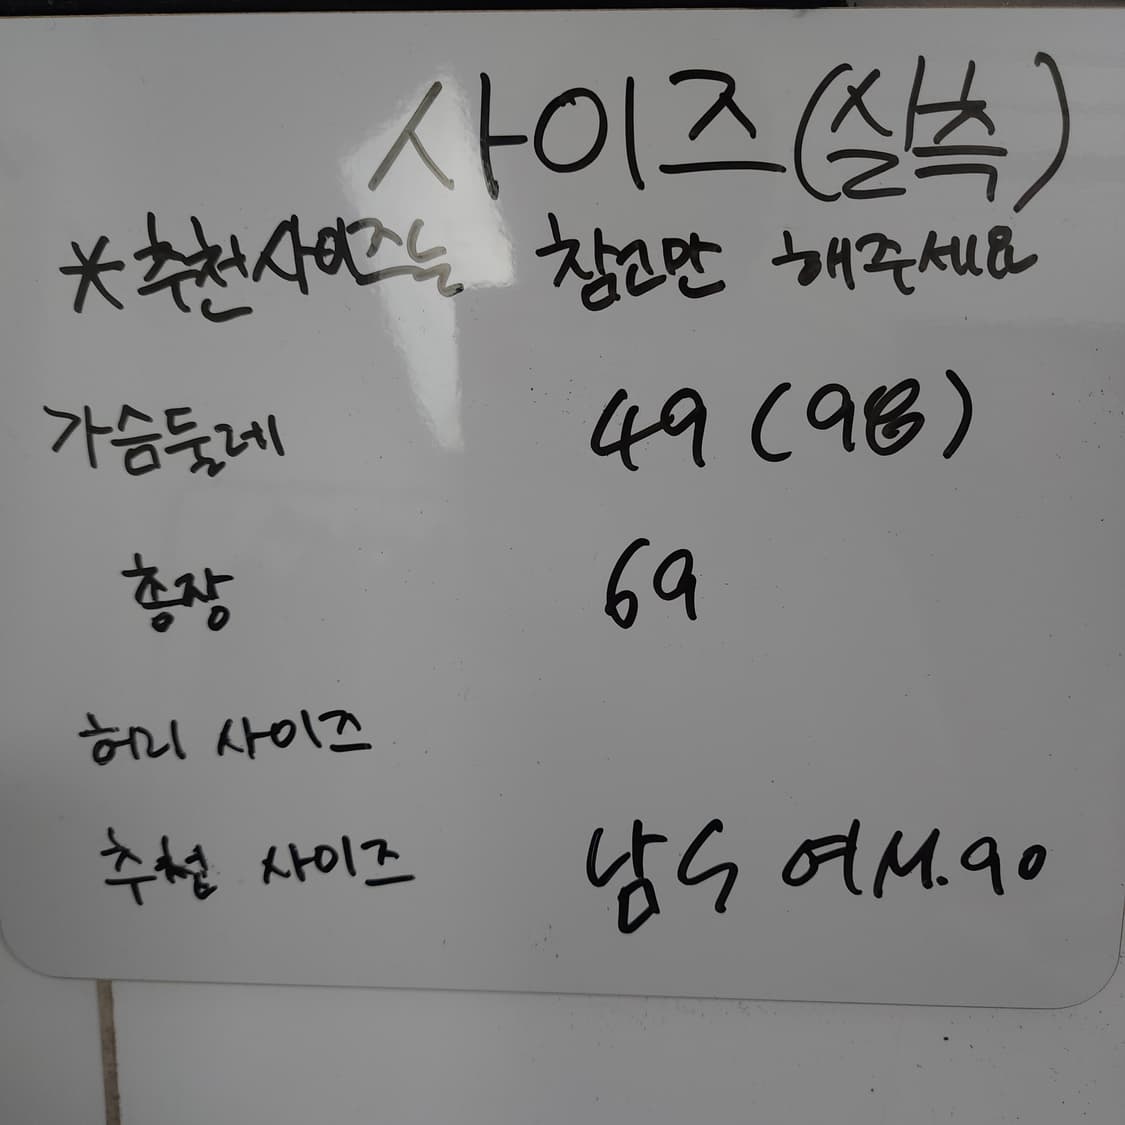 사이즈(실측)
*추천사이즈는 참고만 해주세요
가슴둘레 49 (98)
총장 69
허리 사이즈
추천 사이즈 남 S 여 M. 90